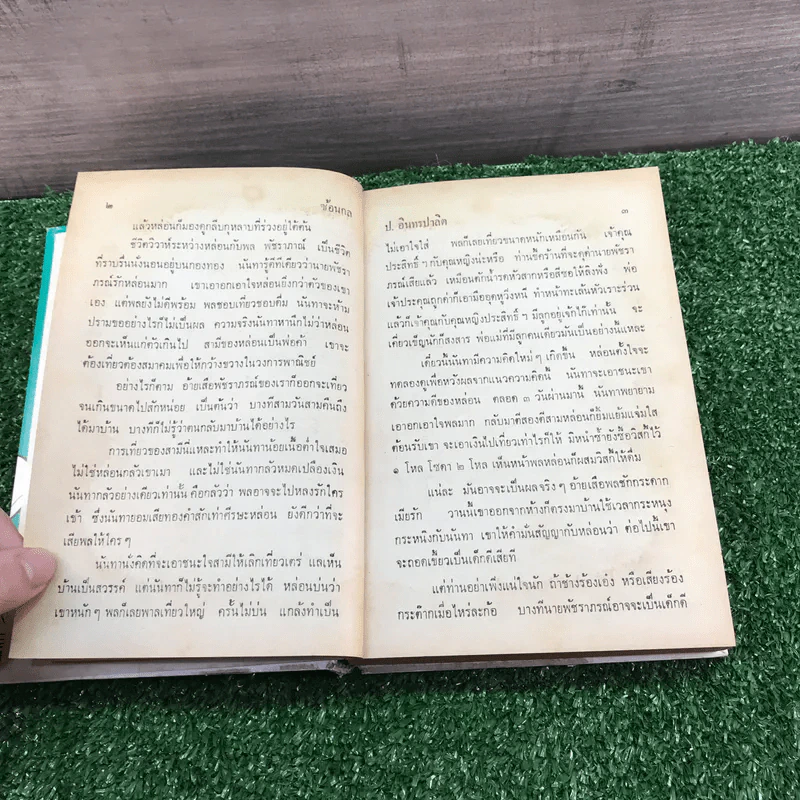 ๒
ซ้อนกล
แล้วหล่อนก็มองดูกลีบกุหลาบที่ร่วงอยู่ใต้ต้น
ชีวิตวิวาห์ระหว่างหล่อนกับพล พัชราภรณ์ เป็นชีวิต
ที่ราบรื่นนั่งนอนอยู่บนกองทอง นันทารู้ดีทีเดียวว่านายพัชรา
ภรณ์รักหล่อนมาก เขาเอาอกเอาใจหล่อนยิ่งกว่าตัวของเขา
เอง แต่พลยังไม่ดีพร้อม พลชอบเที่ยวชอบดื่ม นันทาจะห้าม
ปรามขออย่างไรก็ไม่เป็นผล ความจริงนันทาหานึกไม่ว่าหล่อน
ออกจะเห็นแก่ตัวเกินไป สามีของหล่อนเป็นพ่อค้า เขาจะ
ต้องเที่ยวต้องสมาคมเพื่อให้กว้างขวางในวงการพาณิชย์
อย่างไรก็ตาม อ้ายเสือพัชราภรณ์ของเราก็ออกจะเที่ยว
จนเกินขนาดไปสักหน่อย เป็นต้นว่า บางทีสามวันสามคืนถึง
ได้มาบ้าน บางทีก็ไม่รู้ว่าตนกลับมาบ้านได้อย่างไร
การเที่ยวของสามีนี่แหละทำให้นันทาน้อยเนื้อต่ำใจเสมอ
ไม่ใช่หล่อนกลัวเขาเมา และไม่ใช่นันทากลัวหมดเปลืองเงิน
นันทากลัวอย่างเดียวเท่านั้น คือกลัวว่า พลอาจจะไปหลงรักใคร
เข้า ซึ่งนันทายอมเสียทองคำสักเท่าศีรษะหล่อน ยังดีกว่าที่จะ
เสียพลให้ใคร ๆ
นันทานั่งคิดที่จะเอาชนะใจสามีให้เลิกเที่ยวเตร่ แลเห็น
บ้านเป็นสวรรค์ แต่นันทาก็ไม่รู้จะทำอย่างไรได้ หล่อนบ่นว่า
เขาหนัก ๆ พลก็เลยพาลเที่ยวใหญ่ ครั้นไม่บ่น แกล้งทำเป็น
ป. อินทรปาลิต
๓
ไม่เอาใจใส่ พลก็เลยเที่ยวขนาดหนักเหมือนกัน เจ้าคุณ
ประสิทธิ์ ฯ กับคุณหญิงน่ะหรือ ท่านขี้คร้านที่จะดุด่านายพัชรา
ภรณ์เสียแล้ว เหมือนตักน้ำรดหัวสากหรือสีซอให้ลิงฟัง พ่อ
เจ้าประคุณถูกด่าก็เอามืออุดหูวิ่งหนี ทำหน้าทะเล้นหัวเราะร่วน
แล้วก็เจ้าคุณกับคุณหญิงประสิทธิ์ ฯ มีลูกอยู่เจ้กไก๋เท่านั้น จะ
เคี่ยวเข็ญนักก็สงสาร พ่อแม่ที่มีลูกคนเดียวมันเป็นอย่างนี้แหละ
เดี๋ยวนี้นันทามีความคิดใหม่ ๆ เกิดขึ้น หล่อนตั้งใจจะ
ทดลองดูเพื่อหวังผลจากแนวความคิดนี้ นันทาจะเอาชนะเขา
ด้วยความดีของหล่อน ตลอด ๓ วันผ่านมานี้ นันทาพยายาม
เอาอกเอาใจพลมาก กลับมาตีสองตีสามหล่อนก็ยิ้มแย้มแจ่มใส
ต้อนรับเขา จะเอาเงินไปเที่ยวเท่าไรก็ให้ มิหนำซ้ำยังซื้อวิสกี้ไว้
๑ โหล โซดา ๒ โหล เห็นหน้าพลหล่อนก็ผสมวิสกี้ให้ดื่ม
แน่ละ มันอาจจะเป็นผลจริง ๆ อ้ายเสือพลชักกระดาก
เมียรัก วานนี้เขาออกจากห้างก็ตรงมาบ้านใช้เวลากระหนุง
กระหนิงกับนันทา เขาให้คำมั่นสัญญากับหล่อนว่า ต่อไปนี้เขา
จะถอดเขี้ยวเป็นเด็กดีเสียที
แต่ท่านอย่าเพิ่งแน่ใจนัก ถ้าช้างร้องเอ๋ง หรือเสียงร้อง
กระต๊ากเมื่อไหร่ละก้อ บางทีนายพัชราภรณ์อาจจะเป็นเด็กดี